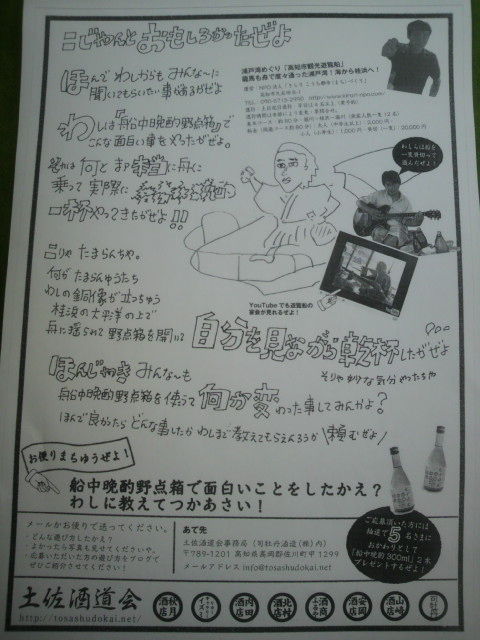 こじゃんとおもしろかったぜよ
ほんで わしからも みんな〜に
聞いてもらいたい事があるがぜよ
わしは『船中晩酌野点箱』で
こんな面白い事をやったがぜよ。
乗って 実際に
一杯やってきたがぜよ!!
こりゃ たまらんちや。
何が たまらんゆうたち
わしの銅像が立っちゅう
桂浜の太平洋の上で
舟に揺られて 野点箱を開いて
自分を見ながら乾杯したがぜよ
そりゃ 妙な気分やったちや
ほんじゃき みんな〜も
船中晩酌野点箱を使って 何か変わった事してみんかよ?
ほんで良かったら どんな事したか わしまで教えてもらえんろうか 頼むぜよ
浦戸湾めぐり「高知市観光遊覧船」
龍馬も舟で度々通った浦戸湾!海から桂浜へ!
わしらは船を
一隻貸切って
遊んだぜよ!
YouTubeでも遊覧船の
宴会が見れるぜよ!
お便りまちゆうぜよ!
船中晩酌野点箱で面白いことをしたかえ?
わしに教えてつかあさい!
メールかお便りで送ってください。
・どんな遊び方したかえ?
・よかったら写真も見せてくださいや。
・応募いただいた方の遊び方をブログで
ぜひご紹介させてください!
あて先
土佐酒道会事務局(司牡丹酒造(株)内)
〒789-1201 高知県高岡郡佐川町甲1299
メールアドレス info@tosashudokai.net
ご応募頂いた方には
抽選で5名さまに
おかわりとして
「船中晩酌 300ml」2本
プレゼントするぜよ!
土佐酒道会
http://tosashudokai.net/